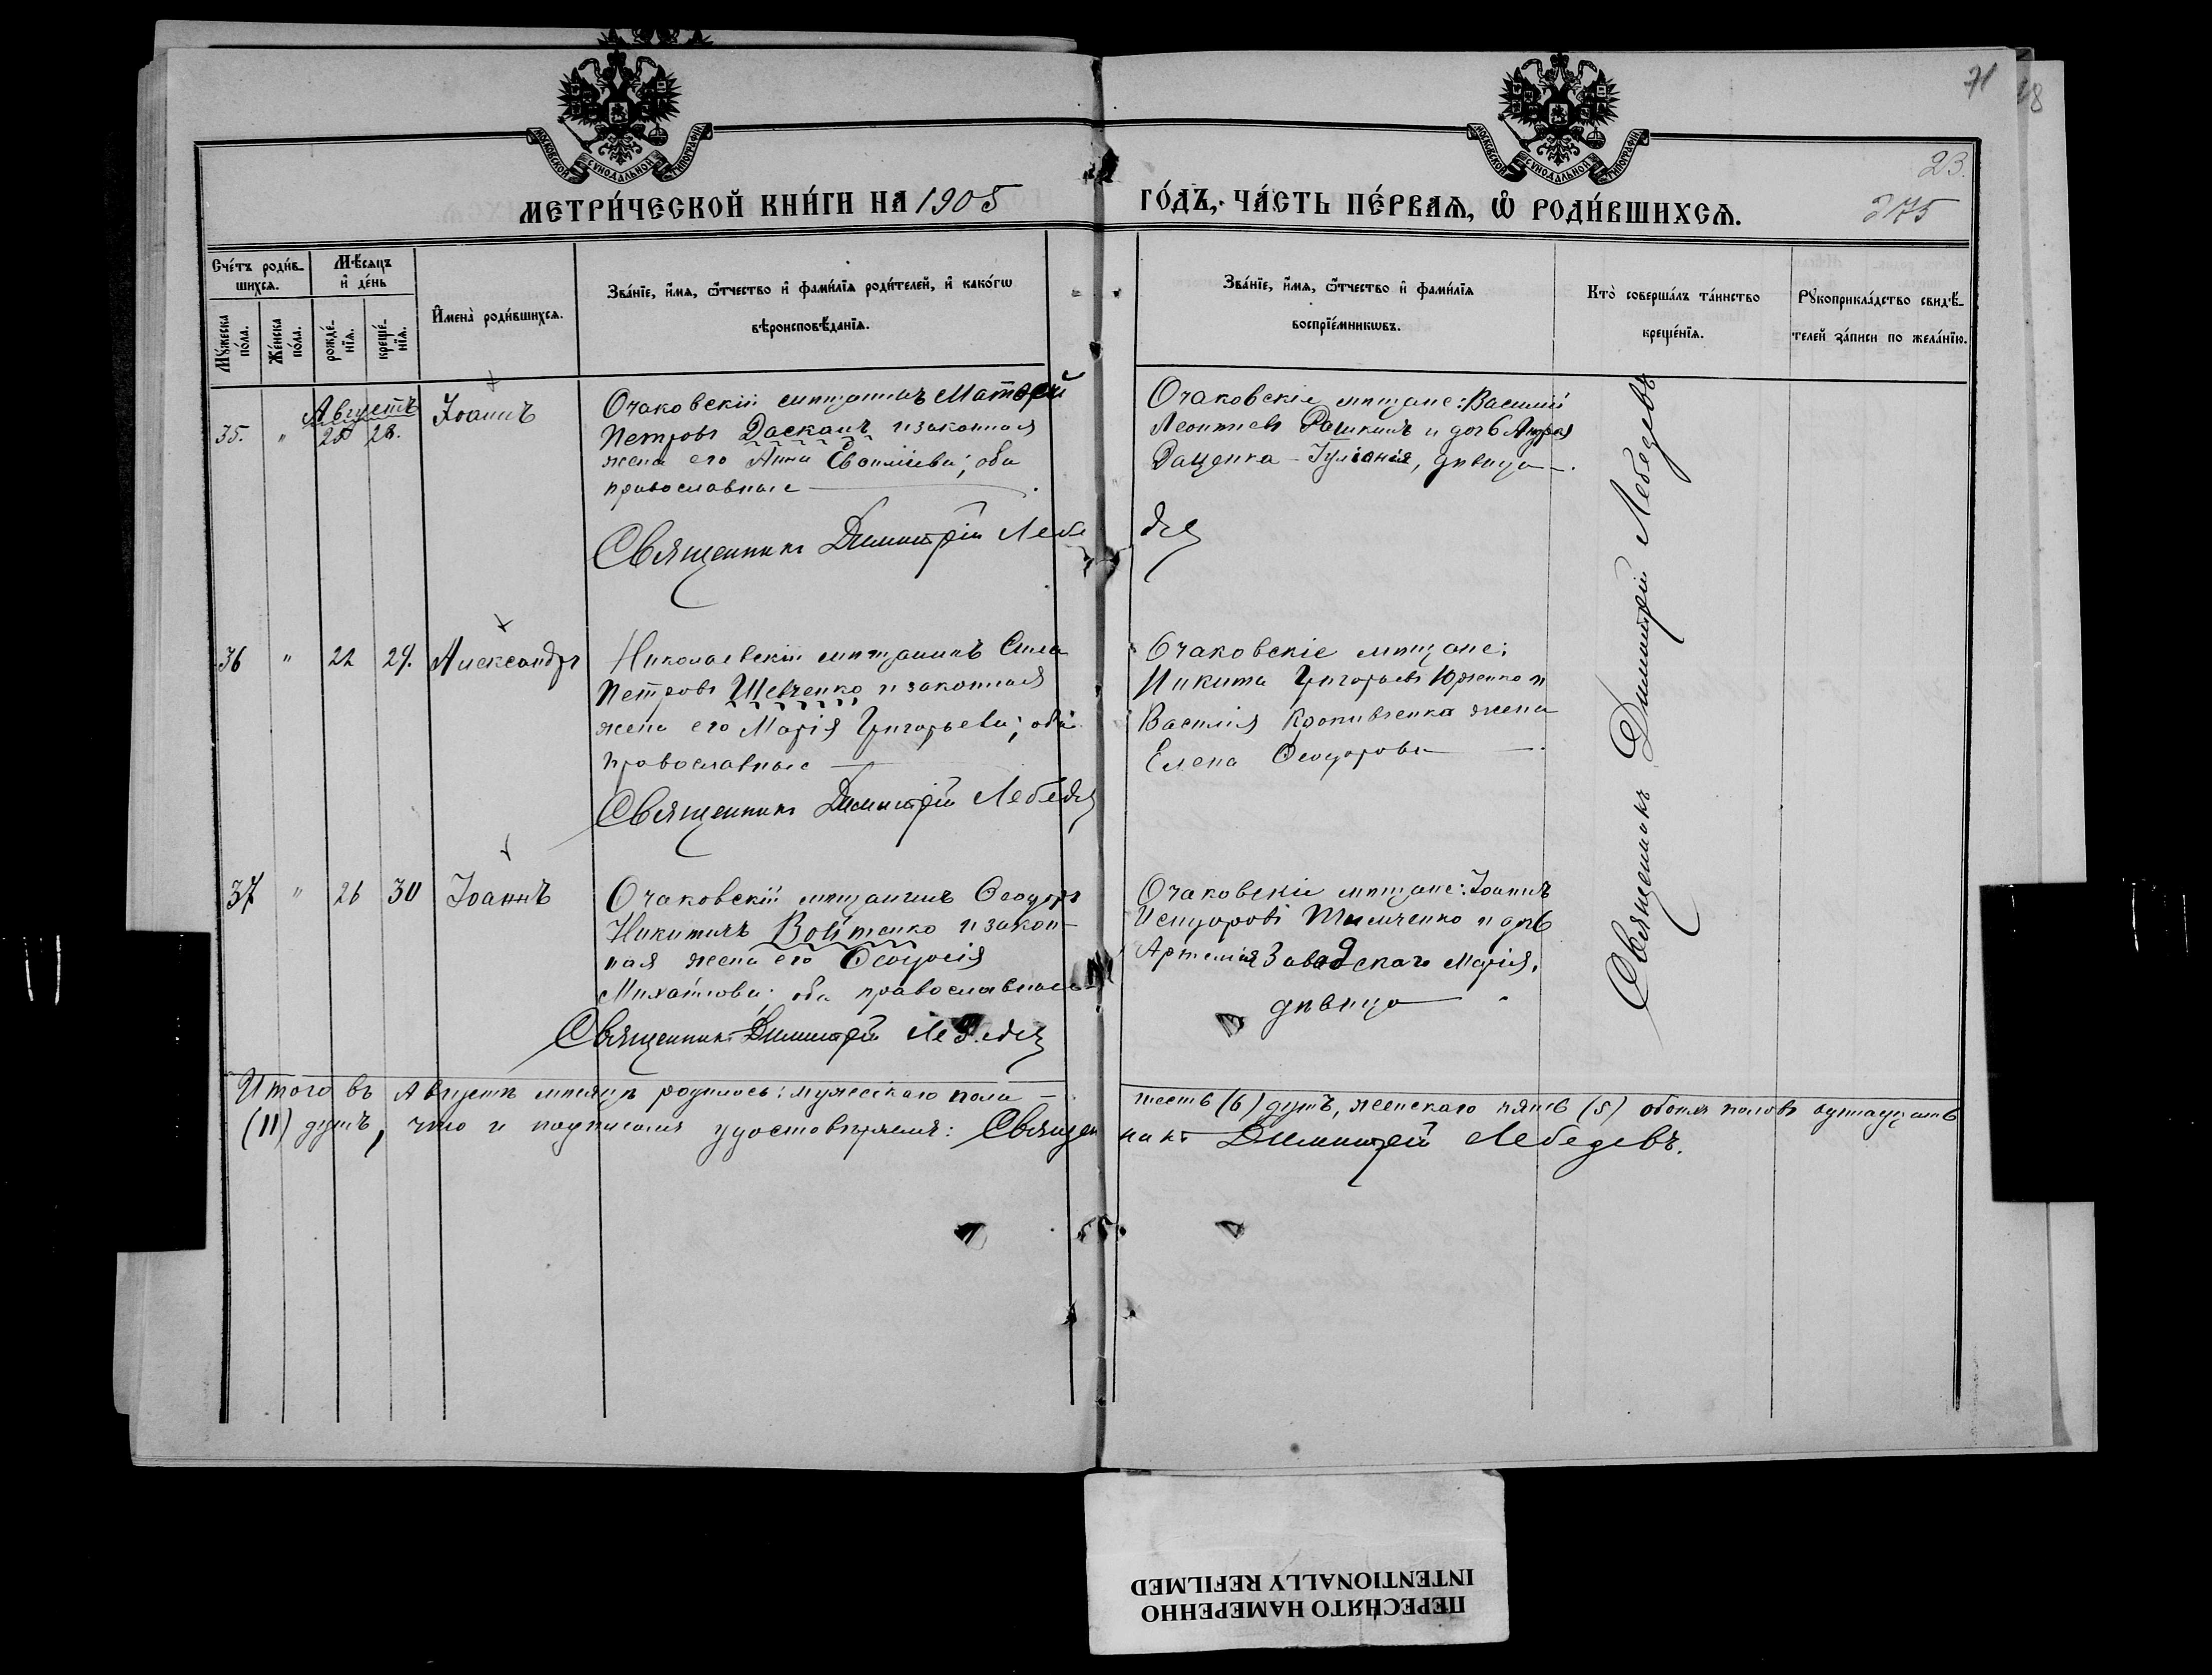 71
18
23.
275
МОСКОВСКОЙ СѴНОДАЛЬНОЙ ТИПОГРАФІИ
МОСКОВСКОЙ СѴНОДАЛЬНОЙ ТИПОГРАФІИ
МЕТРИ́ЧЕСКОЙ КНИ́ГИ НА 1905
ГО́ДЪ, ЧА́СТЬ ПЕ́РВАѦ, Ѽ РОДИ́ВШИХСѦ.
Сче́тъ роди́в-
шихсѧ.
Мꙋжеска
по́ла.
Же́нска
по́ла.
Мѣ́сѧцъ
и҆ де́нь
рожде́-
нїѧ.
креще́-
нїѧ.
И҆мена̀ роди́вшихсѧ.
Зва́нїе, и҆́мѧ, ѻ҆́тчество и҆ фами́лїѧ роди́телей, и҆ како́гѡ
вѣроисповѣ́данїѧ.
Зва́нїе, и҆́мѧ, ѻ҆́тчество и҆ фами́лїѧ
воспрїе́мникѡвъ.
Кто̀ соверша́лъ та́инство
креще́нїѧ.
Рꙋкоприкла́дство свидѣ́-
телей за́писи по жела́нїю.
Августъ
35. " 25 28. Іоаннъ
Очаковскій мѣщанинъ Матѳей
Петровъ Даскалъ и законная
жена его Анна Евѳиміева; оба
православные
Священникъ Димитрій Лебе
дев
Очаковскіе мѣщане: Василій
Леонтіевъ Рашкилъ и дочь Андрея
Даценка - Іуліанія, дѣвица.
36 " 22 29. Александръ
Николаевскій мѣщанинъ Сила
Петровъ Шевченко и законная
жена его Марія Григорьева; оба
православные
Священникъ Димитрій Лебедев
Очаковскіе мѣщане:
Никита Григорьевъ Юрченко и
Василія Кропивченка жена
Елена Ѳеодорова
37 " 26 30 Іоаннъ
Очаковскій мѣщанинъ Ѳеодоръ
Никитинъ Войтенко и закон-
ная жена его Ѳеодосія
Михайлова; оба православные
Священникъ Димитрій Лебедев
Очаковскіе мѣщане: Іоаннъ
Исидоровъ Тимченко и дочь
Артемія Завадскаго Марія,
дѣвица
Священникъ Димитрій Лебедевъ
Итого въ Августѣ мѣсяцѣ родилось: мужескаго пола -
шесть (6) душъ, женскаго пять (5) обоихъ половъ одинадцать
(11) душъ, что и подписомъ удостовѣряемъ: Священ
никъ Димитрій Лебедевъ.
ПЕРЕСНЯТО НАМЕРЕННО
INTENTIONALLY REFILMED